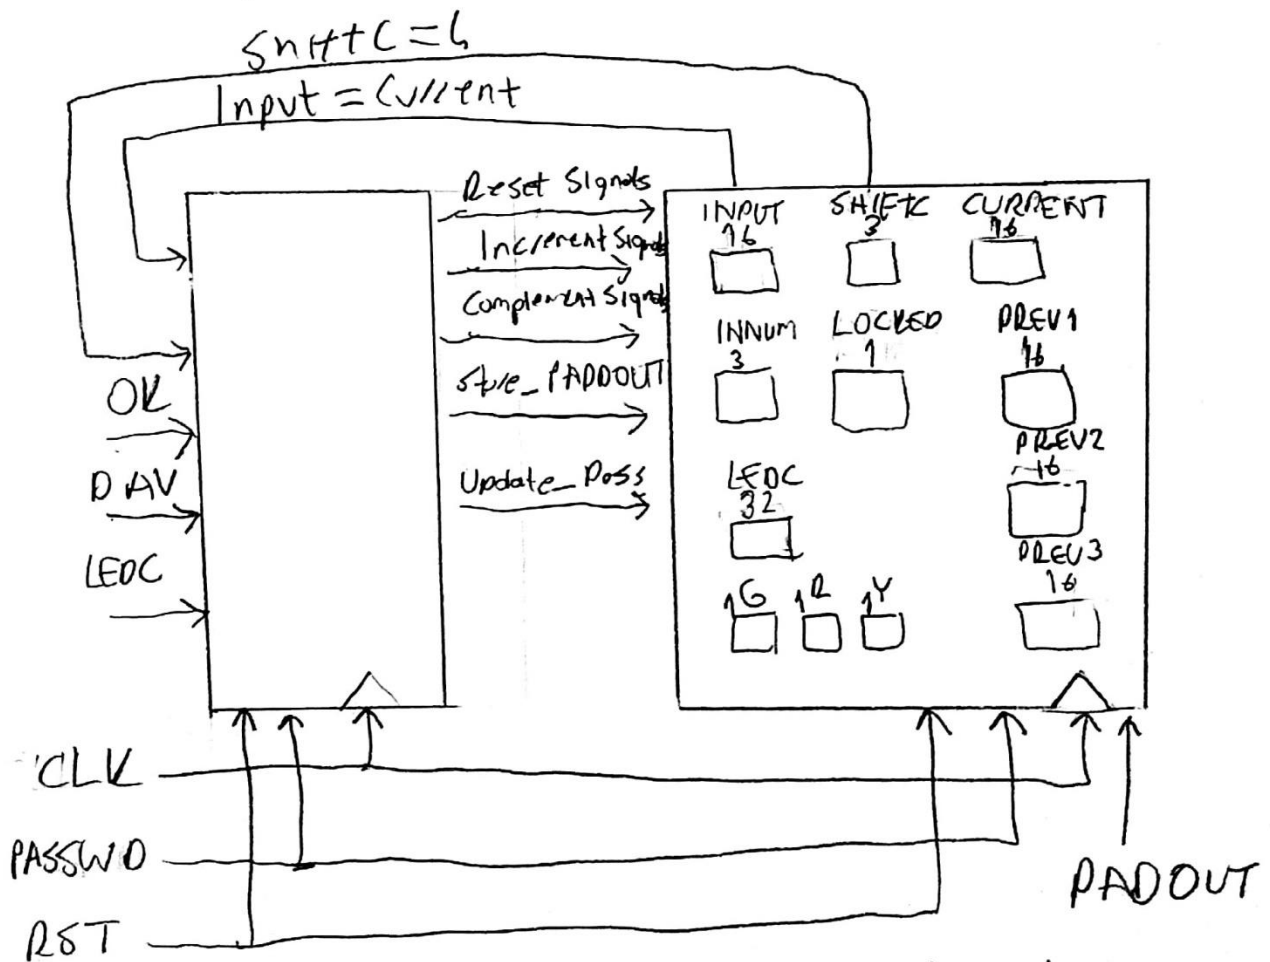 ShiftC = 4
Input = Current
Reset Signals
Increment Signals
Complement Signals
Store_PADDOUT
Update_Pass
OK
DAV
LEDC
INPUT
16
SHIFTC
3
CURRENT
16
INNUM
3
LOCKED
1
PREV1
16
PREV2
16
LEDC
32
PREV3
16
1 G
1 R
1 Y
CLK
PASSWD
RST
PADOUT